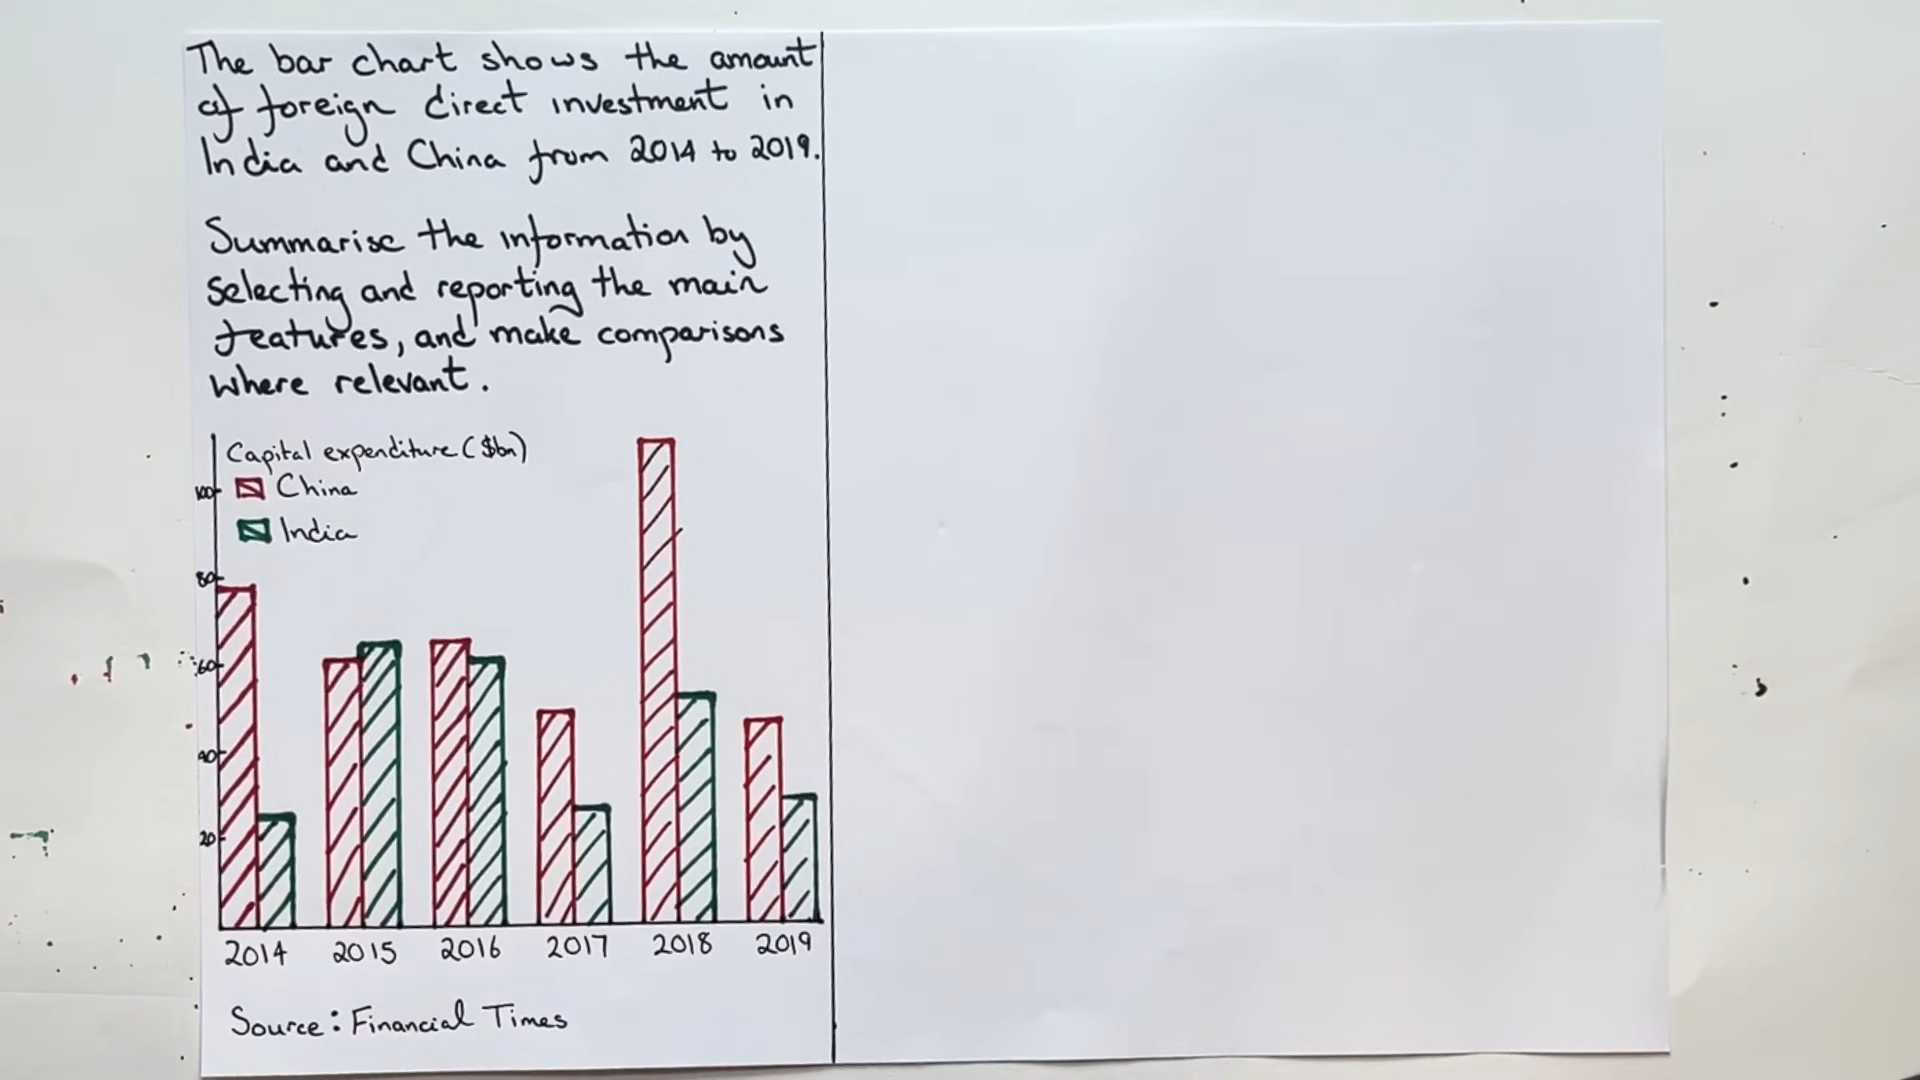 The bar chart shows the amount
of foreign direct investment in
India and China from 2014 to 2019.
Summarise the information by
selecting and reporting the main
features, and make comparisons
where relevant.
Capital expenditure ($bn)
China
India
100
80
60
40
20
2014 2015 2016 2017 2018 2019
Source: Financial Times